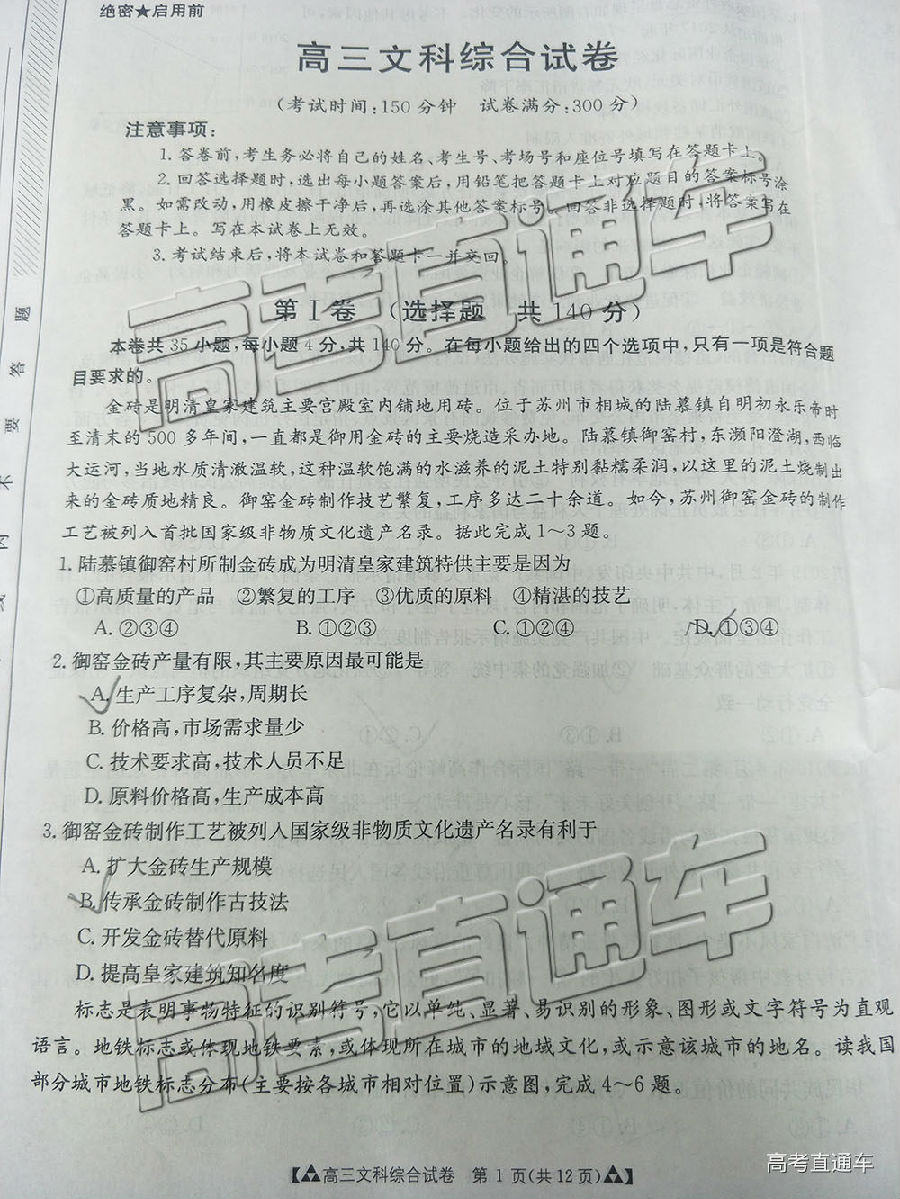 绝密★启用前
高三文科综合试卷
(考试时间:150分钟 试卷满分:300分)
注意事项:
1.答卷前,考生务必将自己的姓名、考生号、考场号和座位号填写在答题卡上。
2.回答选择题时,选出每小题答案后,用铅笔把答题卡上对应题目的答案标号涂
黑。如需改动,用橡皮擦干净后,再选涂其他答案标号。回答非选择题时,将答案写在
答题卡上。写在本试卷上无效。
3.考试结束后,将本试卷和答题卡一并交回。
第Ⅰ卷 (选择题 共140分)
本卷共35小题,每小题4分,共140分。在每小题给出的四个选项中,只有一项是符合题
目要求的。
金砖是明清皇家建筑主要宫殿室内铺地用砖。位于苏州市相城的陆慕镇自明初永乐帝时
至清末的500多年间,一直都是御用金砖的主要烧造采办地。陆慕镇御窑村,东濒阳澄湖,西临
大运河,当地水质清澈温软,这种温软饱满的水滋养的泥土特别黏糯柔润,以这里的泥土烧制出
来的金砖质地精良。御窑金砖制作技艺繁复,工序多达二十余道。如今,苏州御窑金砖的制作
工艺被列入首批国家级非物质文化遗产名录。据此完成1~3题。
1.陆慕镇御窑村所制金砖成为明清皇家建筑特供主要是因为
①高质量的产品 ②繁复的工序 ③优质的原料 ④精湛的技艺
A.②③④ B.①②③ C.①②④ D.①③④
2.御窑金砖产量有限,其主要原因最可能是
A.生产工序复杂,周期长
B.价格高,市场需求量少
C.技术要求高,技术人员不足
D.原料价格高,生产成本高
3.御窑金砖制作工艺被列入国家级非物质文化遗产名录有利于
A.扩大金砖生产规模
B.传承金砖制作古技法
C.开发金砖替代原料
D.提高皇家建筑知名度
标志是表明事物特征的识别符号,它以单纯、显著、易识别的形象、图形或文字符号为直观
语言。地铁标志或体现地铁要素,或体现所在城市的地域文化,或示意该城市的地名。读我国
部分城市地铁标志分布(主要按各城市相对位置)示意图,完成4~6题。
高三文科综合试卷 第1页(共12页)
题
答
要
高考直通车
高考直通车
高考直通车